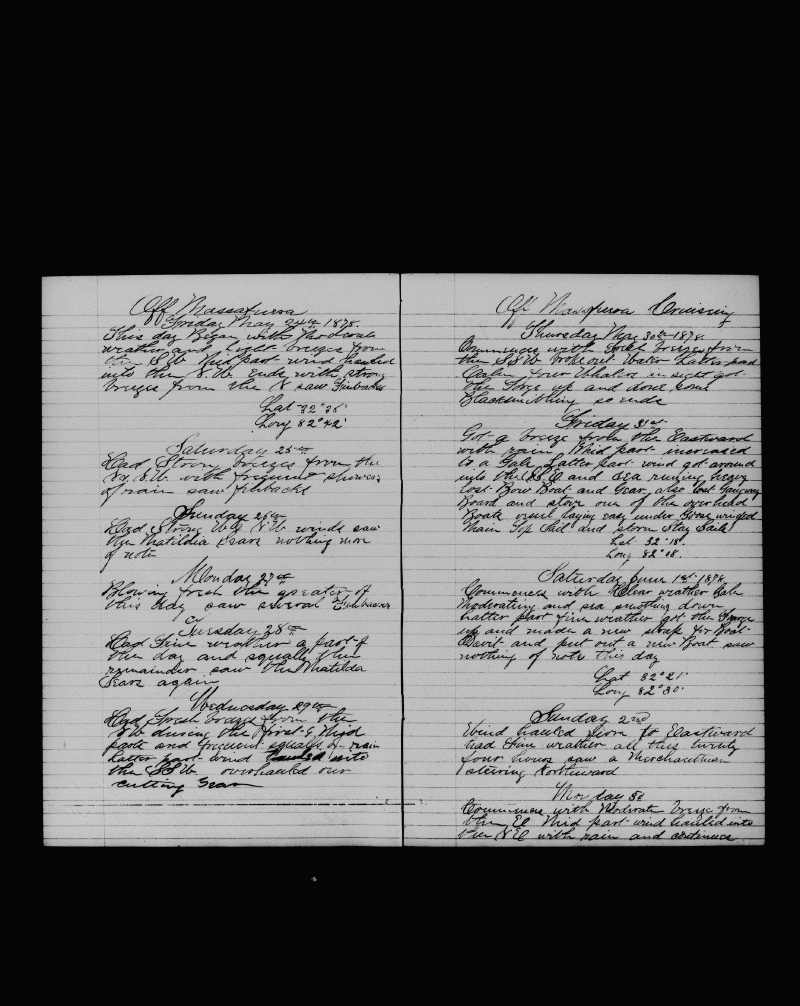 Off Massafuera
Friday May 24th 1878.
This day Began with Moderate
weather and light breezes from
the S.W. Mid part wind hauled
into the N.W. Ends with strong
breezes from the N saw Finbacks
Lat 32°35'
Long 82°42'
Saturday 25th
Had Strong breezes from the
N.W. with frequent showers
of rain saw finbacks
Sunday 26th
Had Strong N.W. winds saw
the Matilda Sears nothing more
of note
Monday 27th
Blowing fresh the greater of
this day saw several Finbacks
Tuesday 28th
Had Fine weather a part of
the day and squally the
remainder saw the Matilda
Sears again
Wednesday 29th
Had fresh breezes from the
N.W during the first & Mid
parts and frequent squalls of rain
Latter part wind hauled into
the SSW overhauled our
cutting Gear
Off Massafuera Cruising
Thursday May 30th 1878
Commences with fresh breezes from
the SSW broke out water Latter part
Calm four Whalers in sight got
the forge up and done some
Blacksmithing so ends
Friday 31st
Got a breeze from the Eastward
with rain Mid part increased
to a Gale Latter part wind got around
into the S E and sea running heavy
lost Bow Boat and Gear, also lost Gangway
Board and stove one of the overhead
Boats vessel laying easy under Goose winged
Main Top Sail and storm Stay Sails
Lat 32°18'
Long 82°08'
Saturday June 1st 1878
Commences with Clear weather Gale
Moderating and sea smothing down
Latter part fine weather got the Forge
up and made a new strap for Boat
Davit and put out a new Boat saw
nothing of note This day
Lat 32°21'
Long 82°30'
Sunday 2nd
Wind hauled from to Eastward
had Fine weather all this twenty
four hours saw a Merchantman
steering Northward
Monday 3d
Commences with Moderate breeze from
the E Mid part wind hauled into
the N E with rain and continues